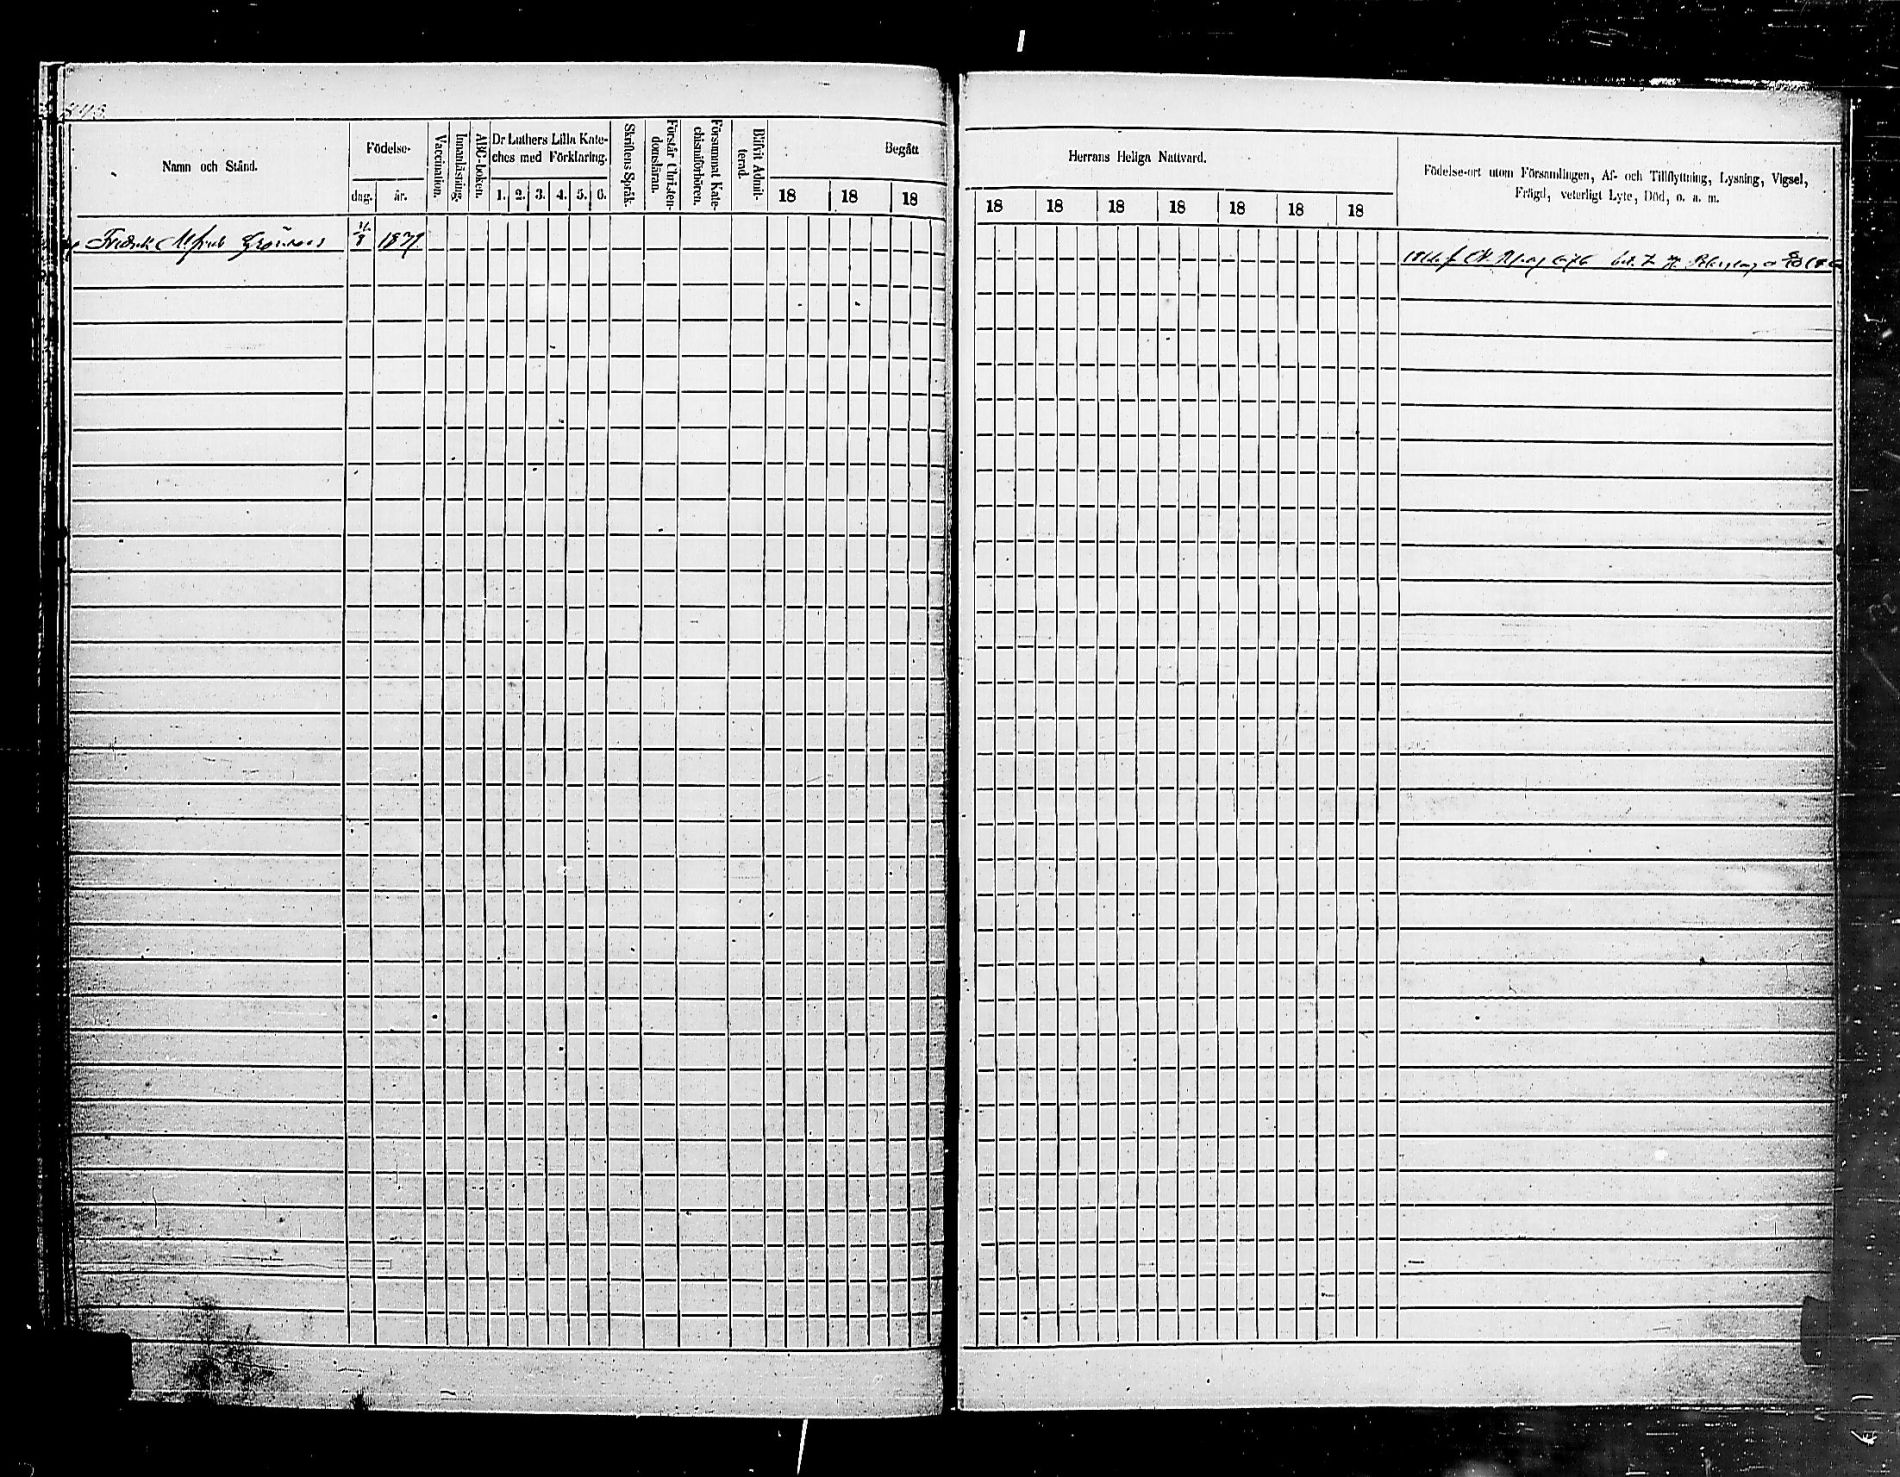 443.
Namn och Stånd.
Födelse-
dag.
år.
Vaccination.
Innanläsning.
ABC-boken.
Dr Luthers Lilla Kate-
ches med Förklaring.
1. 2. 3. 4. 5. 6.
Skriftens Språk.
Förstår Christen-
domsläran.
Försummat Kate-
chismiförhören.
Blifvit Admit-
terad.
Begått
18 18 18
Herrans Heliga Nattvard.
18 18 18 18 18 18 18
Födelse-ort utom Församlingen, Af- och Tillflyttning, Lysning, Vigsel,
Frägd, veterligt Lyte, Död, o. s. m.
Fredrik Alfred